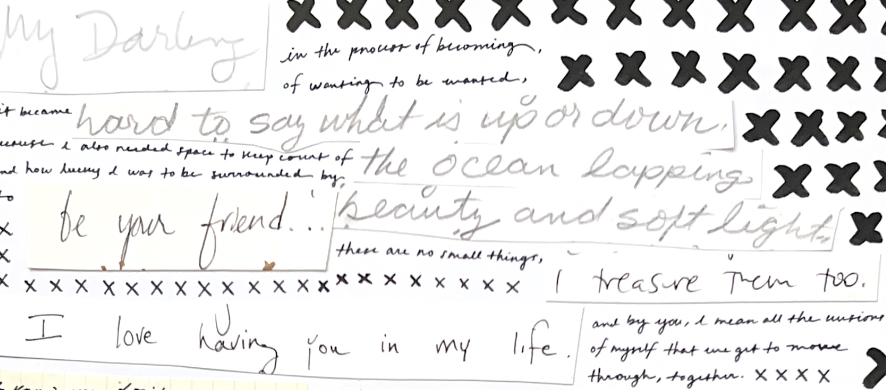 My Darling
in the process of becoming,
of wanting to be wanted,
it became hard to say what is up or down.
I also needed space to keep count of the ocean lapping,
and how lucky I was to be surrounded by, beauty and soft light,
to be your friend...
these are no small things,
I treasure them too.
x x x x x x x x x x x x x x x x x x x x
I love having you in my life.
and by you, I mean all the versions
of myself that we get to move
through, together. x x x x